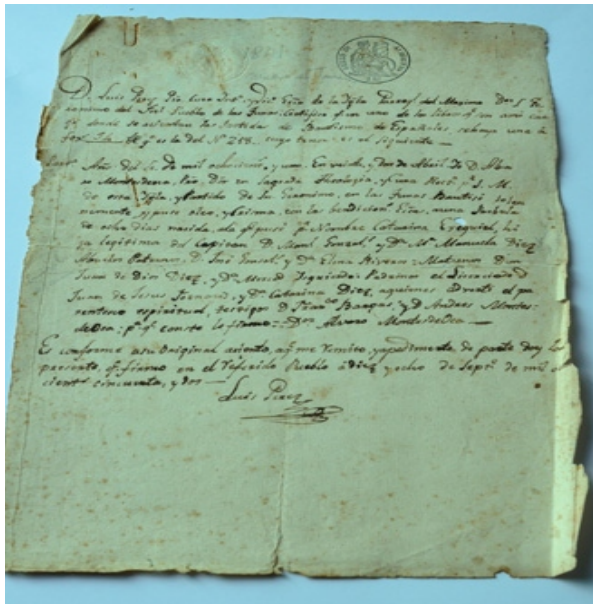 D. Luis Perez Pia Cura de la Yglª Parroql del Maximo Dor S. Ge-
ronimo del Puebla de las Tunas Certifico qe en uno de los libros qe
donde se asientan las Partidas de Bautismo de Españoles, esta una á
fox. qe es la del Nº 258. cuyo tenor es el siguiente
Año del Sr. de mil ochocientos, y uno. En veinte, y dos de Abril Yo D. Alva-
ro Montesdeoca, Pbo. Dor en Sagrada Theologia, y Cura Rector pr S. M.
de esta Yglª, y Partido de San Geronimo, en las Tunas Bautisé solem-
nemente, y puse oleo, y Crisma, con las bendiciones á una Parbula
de ocho dias nasida, ála qe puse pr Nombre Catarina Ezequiel, hi-
ja legitima del Capitan D. Manl Gonzals y Dª Mª Manuela Diez
Abuelos Paternos D. José Gonsals y Dª Elena Maternos Dn
Juan de Dios Diez, y Dª Yzquierdo: Padrinos el Licenciado D
Juan de Jesus y Dª Catarina Diez, aquienes advertí el pa-
rentesco espiritual, testigos D. Franco Bargas, y D. Andres Montes-
deoca; pª qe conste lo firmo = Dor Alvaro Montesdeoca
Es conforme asu Original asiento, aqe me remito, y apedimento de parte doy la
presente, qe firmo en el Referido Pueblo á diez y ocho de Septe de mil o
cientos cincuenta, y dos
Luis Perez